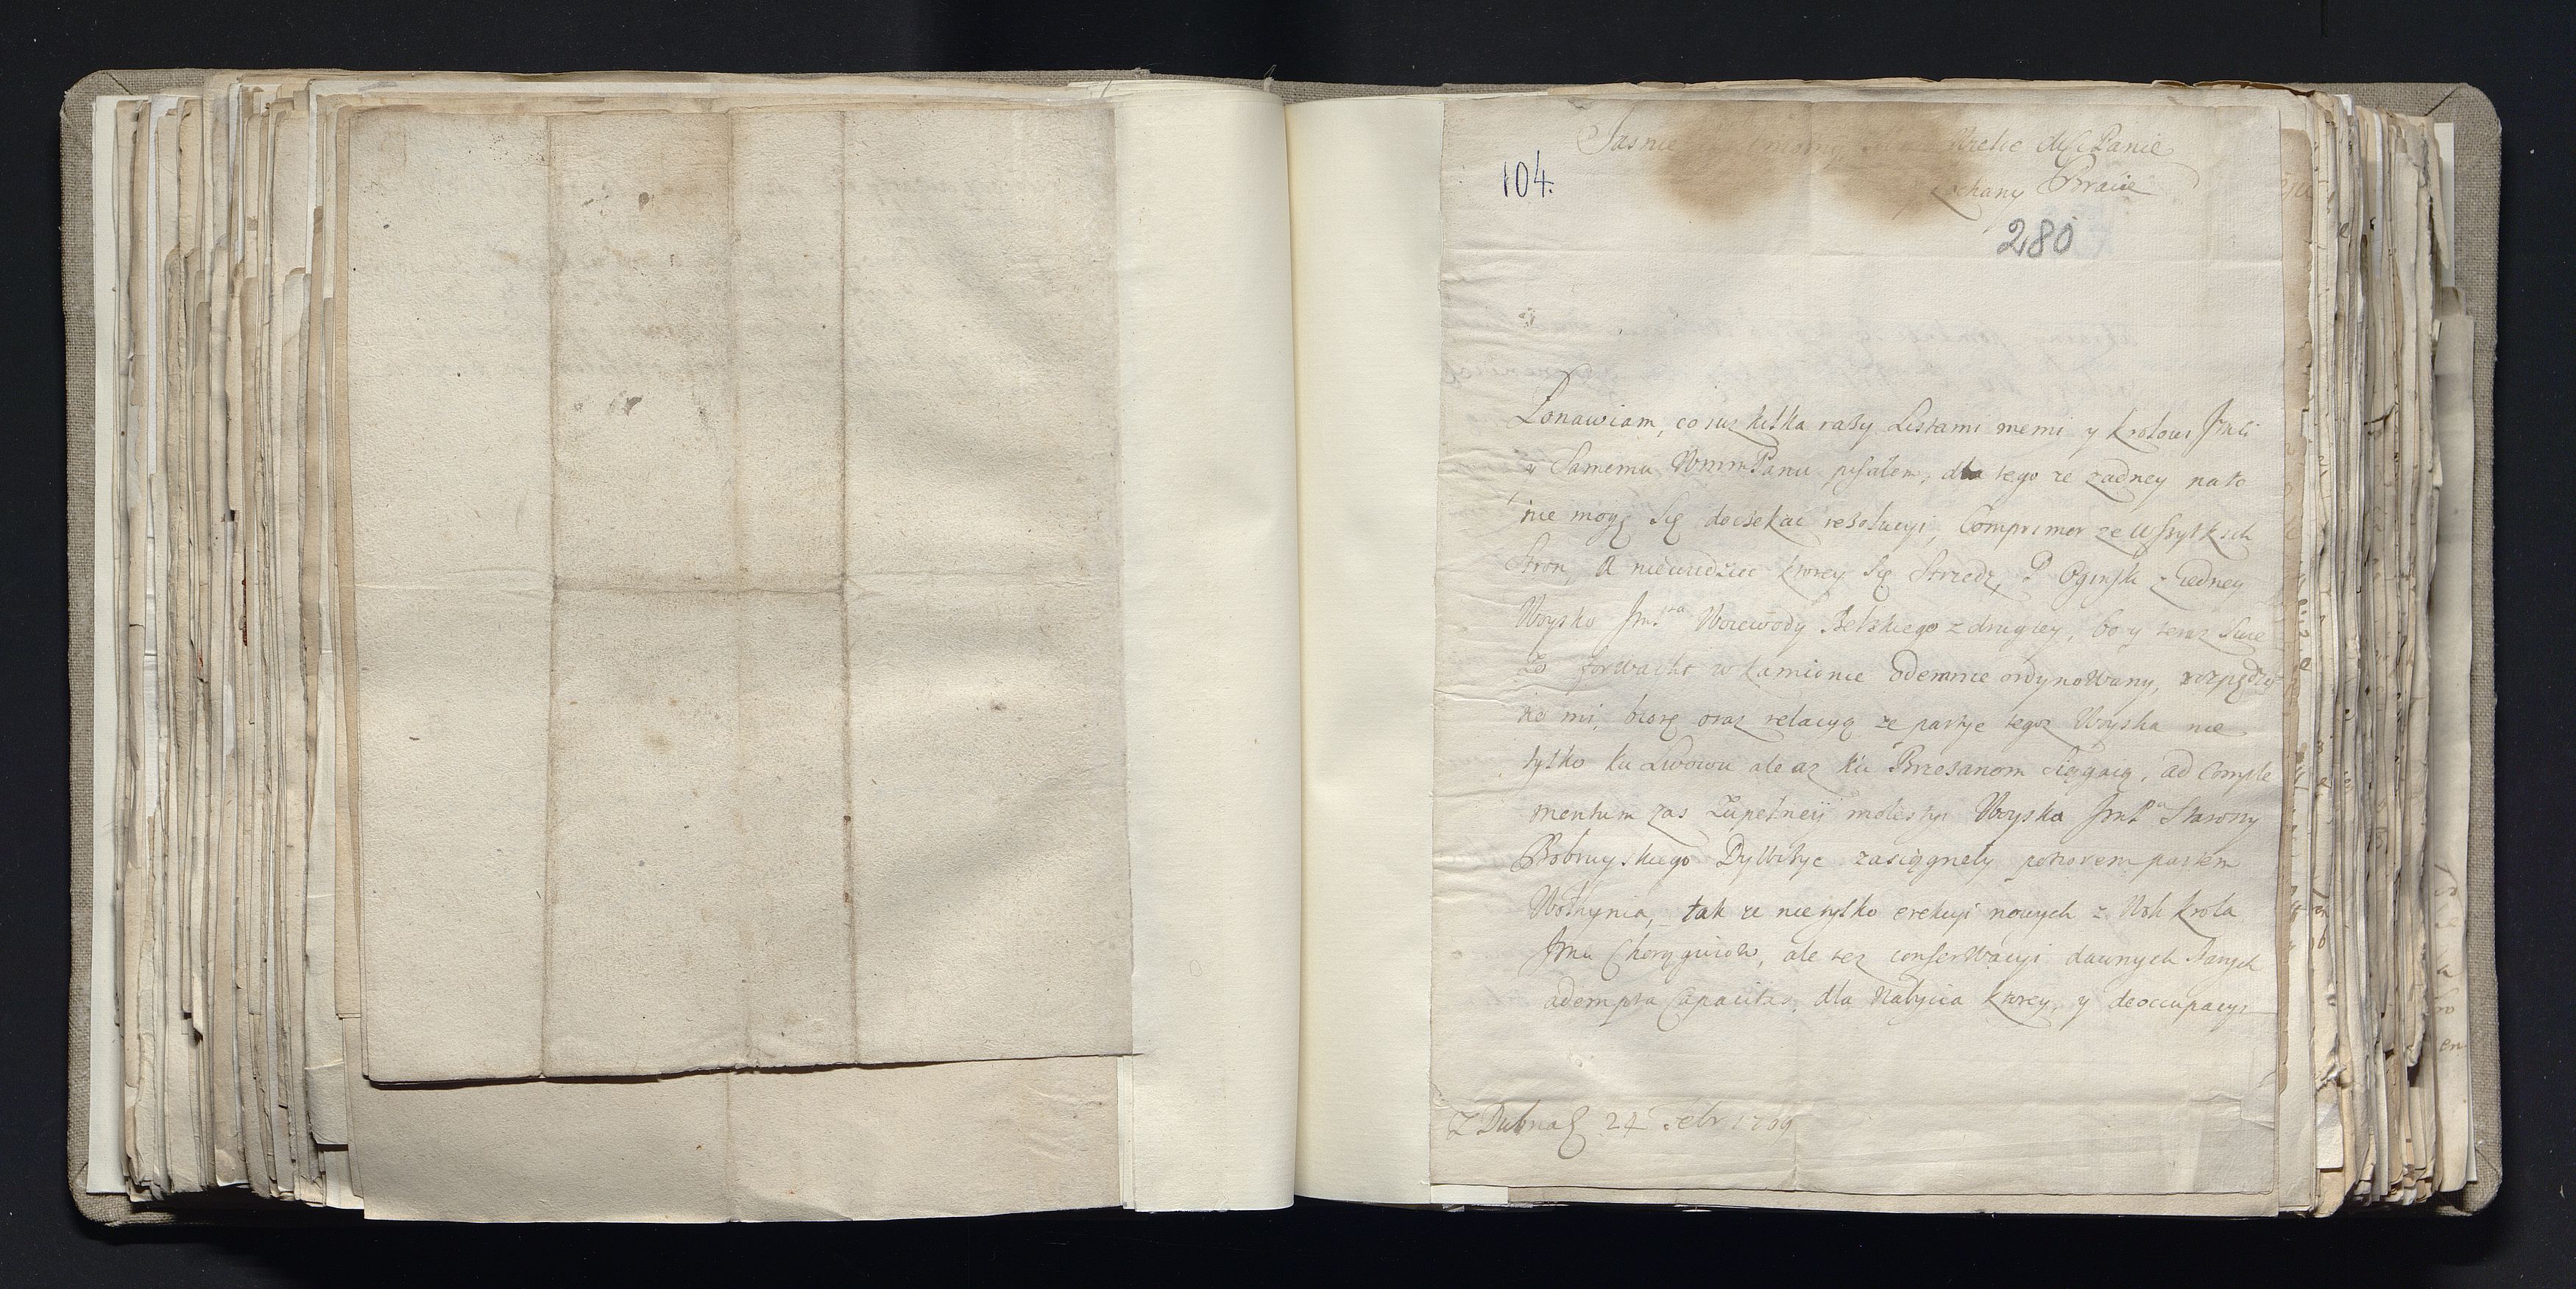 Jasnie Wielmozny Mci Panie
104.
kochany Bracie
280
Ponawiam, co iuz kilka razy Listami memi y krolowi Jmci
y Samemu WmmPanu pisałem, dla tego ze zadney nato
nie mogę się doczekac rezolucyi, Comprimor ze wszytkich
Stron, a niewidzec ktorey się Strzedz, P Oginski z iedney
Woysko Jmsa Woiewody Bełzkiego z drugiey, bo y teraz Swie
zo forwacht w kamionce odemnie ordynowany, rozpędzo
no mi, biorę oraz relacyą ze partye tegoz Woyska nie
tylko ku Lwowu ale az ku Brzezanom sięgaią, ad comple
mentum zas zupełney molestyi Woyska JmPa Starosty
Bobruyskiego Dywizye zasięgneły potiorem partem
Wołhynia, tak ze nietylko erekcyi nowych z Woli krola
Jmci Chorągwiow, ale tez conserwacyi dawnych Starych
adempta Capacitas, dla nabycia ktorey, y deoccupacyi
Z Dubna 24 Febr 1709